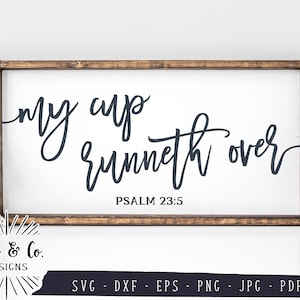 my cup
runneth over
PSALM 23:5
& Co.
SVG - DXF - EPS - PNG - JPG - PDF